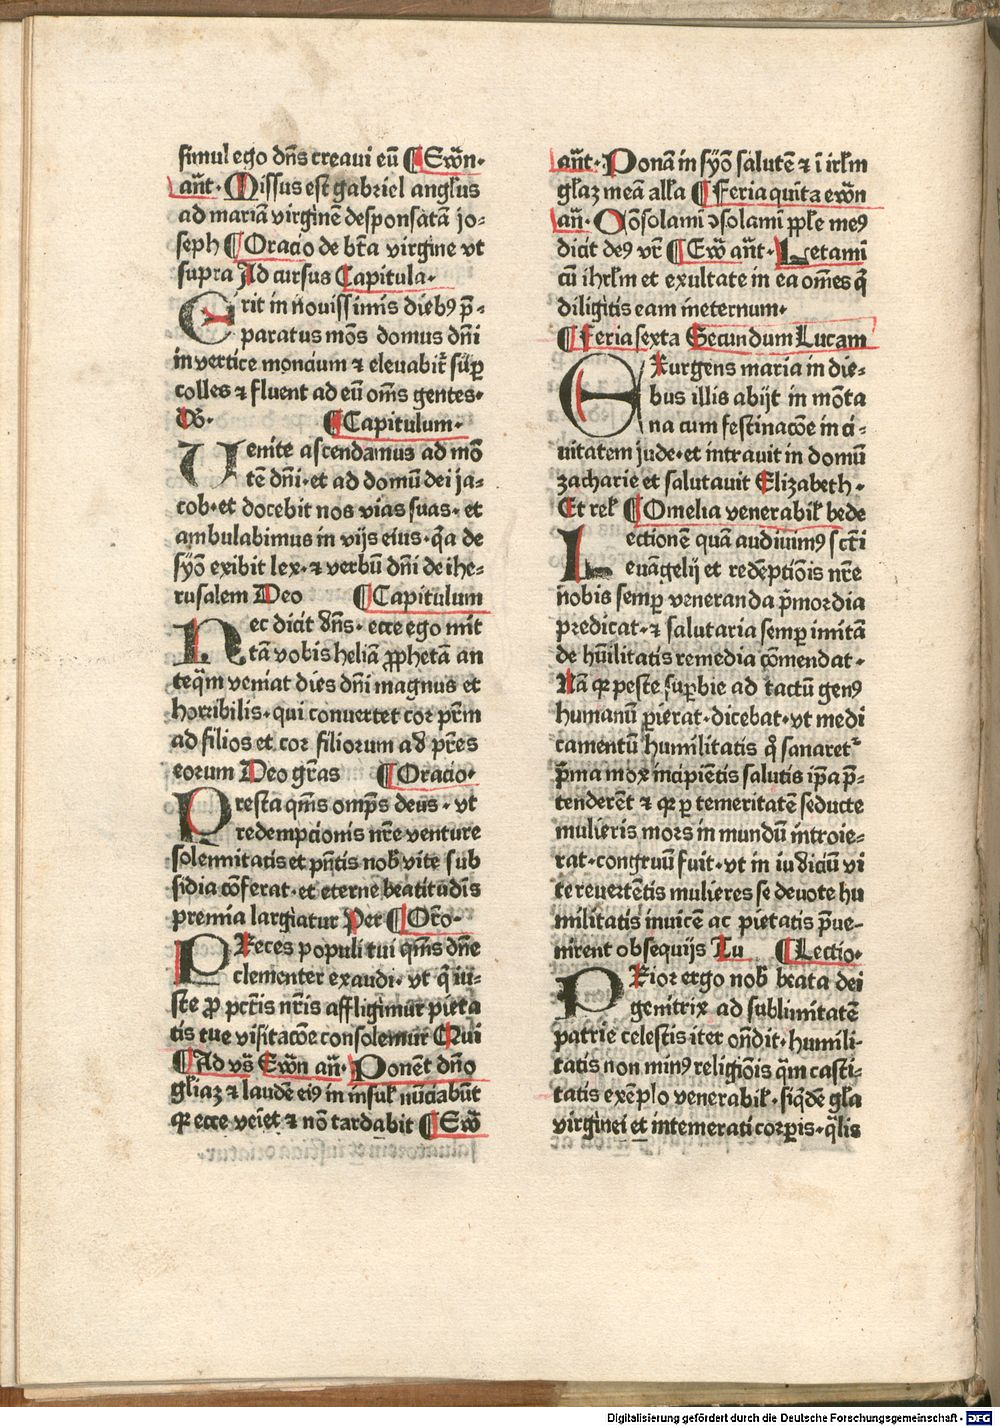 simul ego dn̄s creaui eū ¶Ewn̄·
an̄t· Missus est gabriel angl̄us
ad mariā virginē desponsatā io-
seph ¶Oracio de bt̄a virgine vt
supra Ad cursus Capitula·
Erit in nouissimis dieb9 p̄-
paratus mōs domus dn̄i
in vertice moncium ⁊ eleuabit̄ suꝑ
colles ⁊ fluent ad eū om̄s gentes·
Do· ¶Capitulum·
Uenite ascendamus ad mō
tē dn̄i· et ad domū dei ja-
cob· et docebit nos vias suas· et
ambulabimus in vijs eius· q̄a de
syō exibit lex· ⁊ verbū dn̄i de ihe-
rusalem Deo ¶Capitulum
Nec dicit dn̄s· ecce ego mit
tā vobis heliā ꝓphetā an
teq̄m veniat dies dn̄i magnus et
horribilis· qui conuertet cor pr̄m
ad filios et cor filiorum ad pr̄es
eorum Deo gr̄as ¶Oracio·
Presta qm̄s omp̄s deus· vt
redempcionis nr̄e venture
solennitatis et pn̄tis nob̄ vite sub
sidia cōferat· et eterne beatitudīs
premia largiatur Per ¶Orō·
PReces populi tui qm̄s dn̄e
clementer exaudi· vt q̄ iu-
ste ꝓ pctīs nr̄is affligimur pieta
tis tue visitacōe consolemur Qui
¶Ad vs̄ Ewn̄ an̄· Ponēt dn̄o
gl̄iaz ⁊ laudē ei9 in insul̄ nūciabūt
qꝛ ecce veīet ⁊ nō tardabit ¶Ew̄
an̄t· Ponā in syō salutē ⁊ ī irl̄m
gl̄az meā all̄a ¶Feria quīta ewn̄
an̄· Cōsolamī ↄsolamī ppl̄e me9
dicit de9 vr̄ ¶Ew̄ an̄t· Letamī
cū ihrl̄m et exultate in ea om̄es q̄
diligitis eam ineternum·
¶Feria sexta Secundum Lucam
EXurgens maria in die-
bus illis abijt in mōta
na cum festinacōe in ci-
uitatem jude· et intrauit in domū
zacharie et salutauit Elizabeth·
Et rel̄ ¶Omelia venerabil̄ bede
Lectionē quā audiuim9 sctī
euāgelij et redēptiōis nr̄e
nobis semꝑ veneranda p̄mordia
predicat· ⁊ salutaria semꝑ imitā
de hūilitatis remedia cōmendat·
Nā qꝛ peste suꝑbie ad tactū gen9
humanū ꝑierat· dicebat· vt medi
camentū humilitatis q̊ sanaret᷑
p̄ma mox incipiētis salutis ip̄a p̄-
tenderēt ⁊ qꝛ ꝑ temeritatē seducte
mulieris mors in mundū introie-
rat· congruū fuit· vt in iudiciū vi
te reuertētis mulieres se deuote hu
militatis inuicē ac pietatis p̄ue-
nirent obsequijs Tu ¶Lectio·
PRior ergo nob̄ beata dei
genitrix ad sublimitatē
patrie celestis iter on̄dit· humili-
tatis non min9 religiōis q̄m casti-
tatis exēplo venerabil̄· siq̄dē gl̄a
virginei et intemerati corꝑis· q̄lis
Digitalisierung gefördert durch die Deutsche Forschungsgemeinschaft - DFG